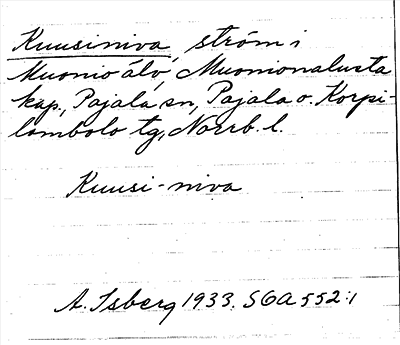 Kuusiniva, ström i
Muonio älv, Muonionalusta
kap., Pajala sn, Pajala o. Korpi-
lombolo tg, Norrb. l.
Kuusi-niva
A. Isberg 1933. SOA 552:1